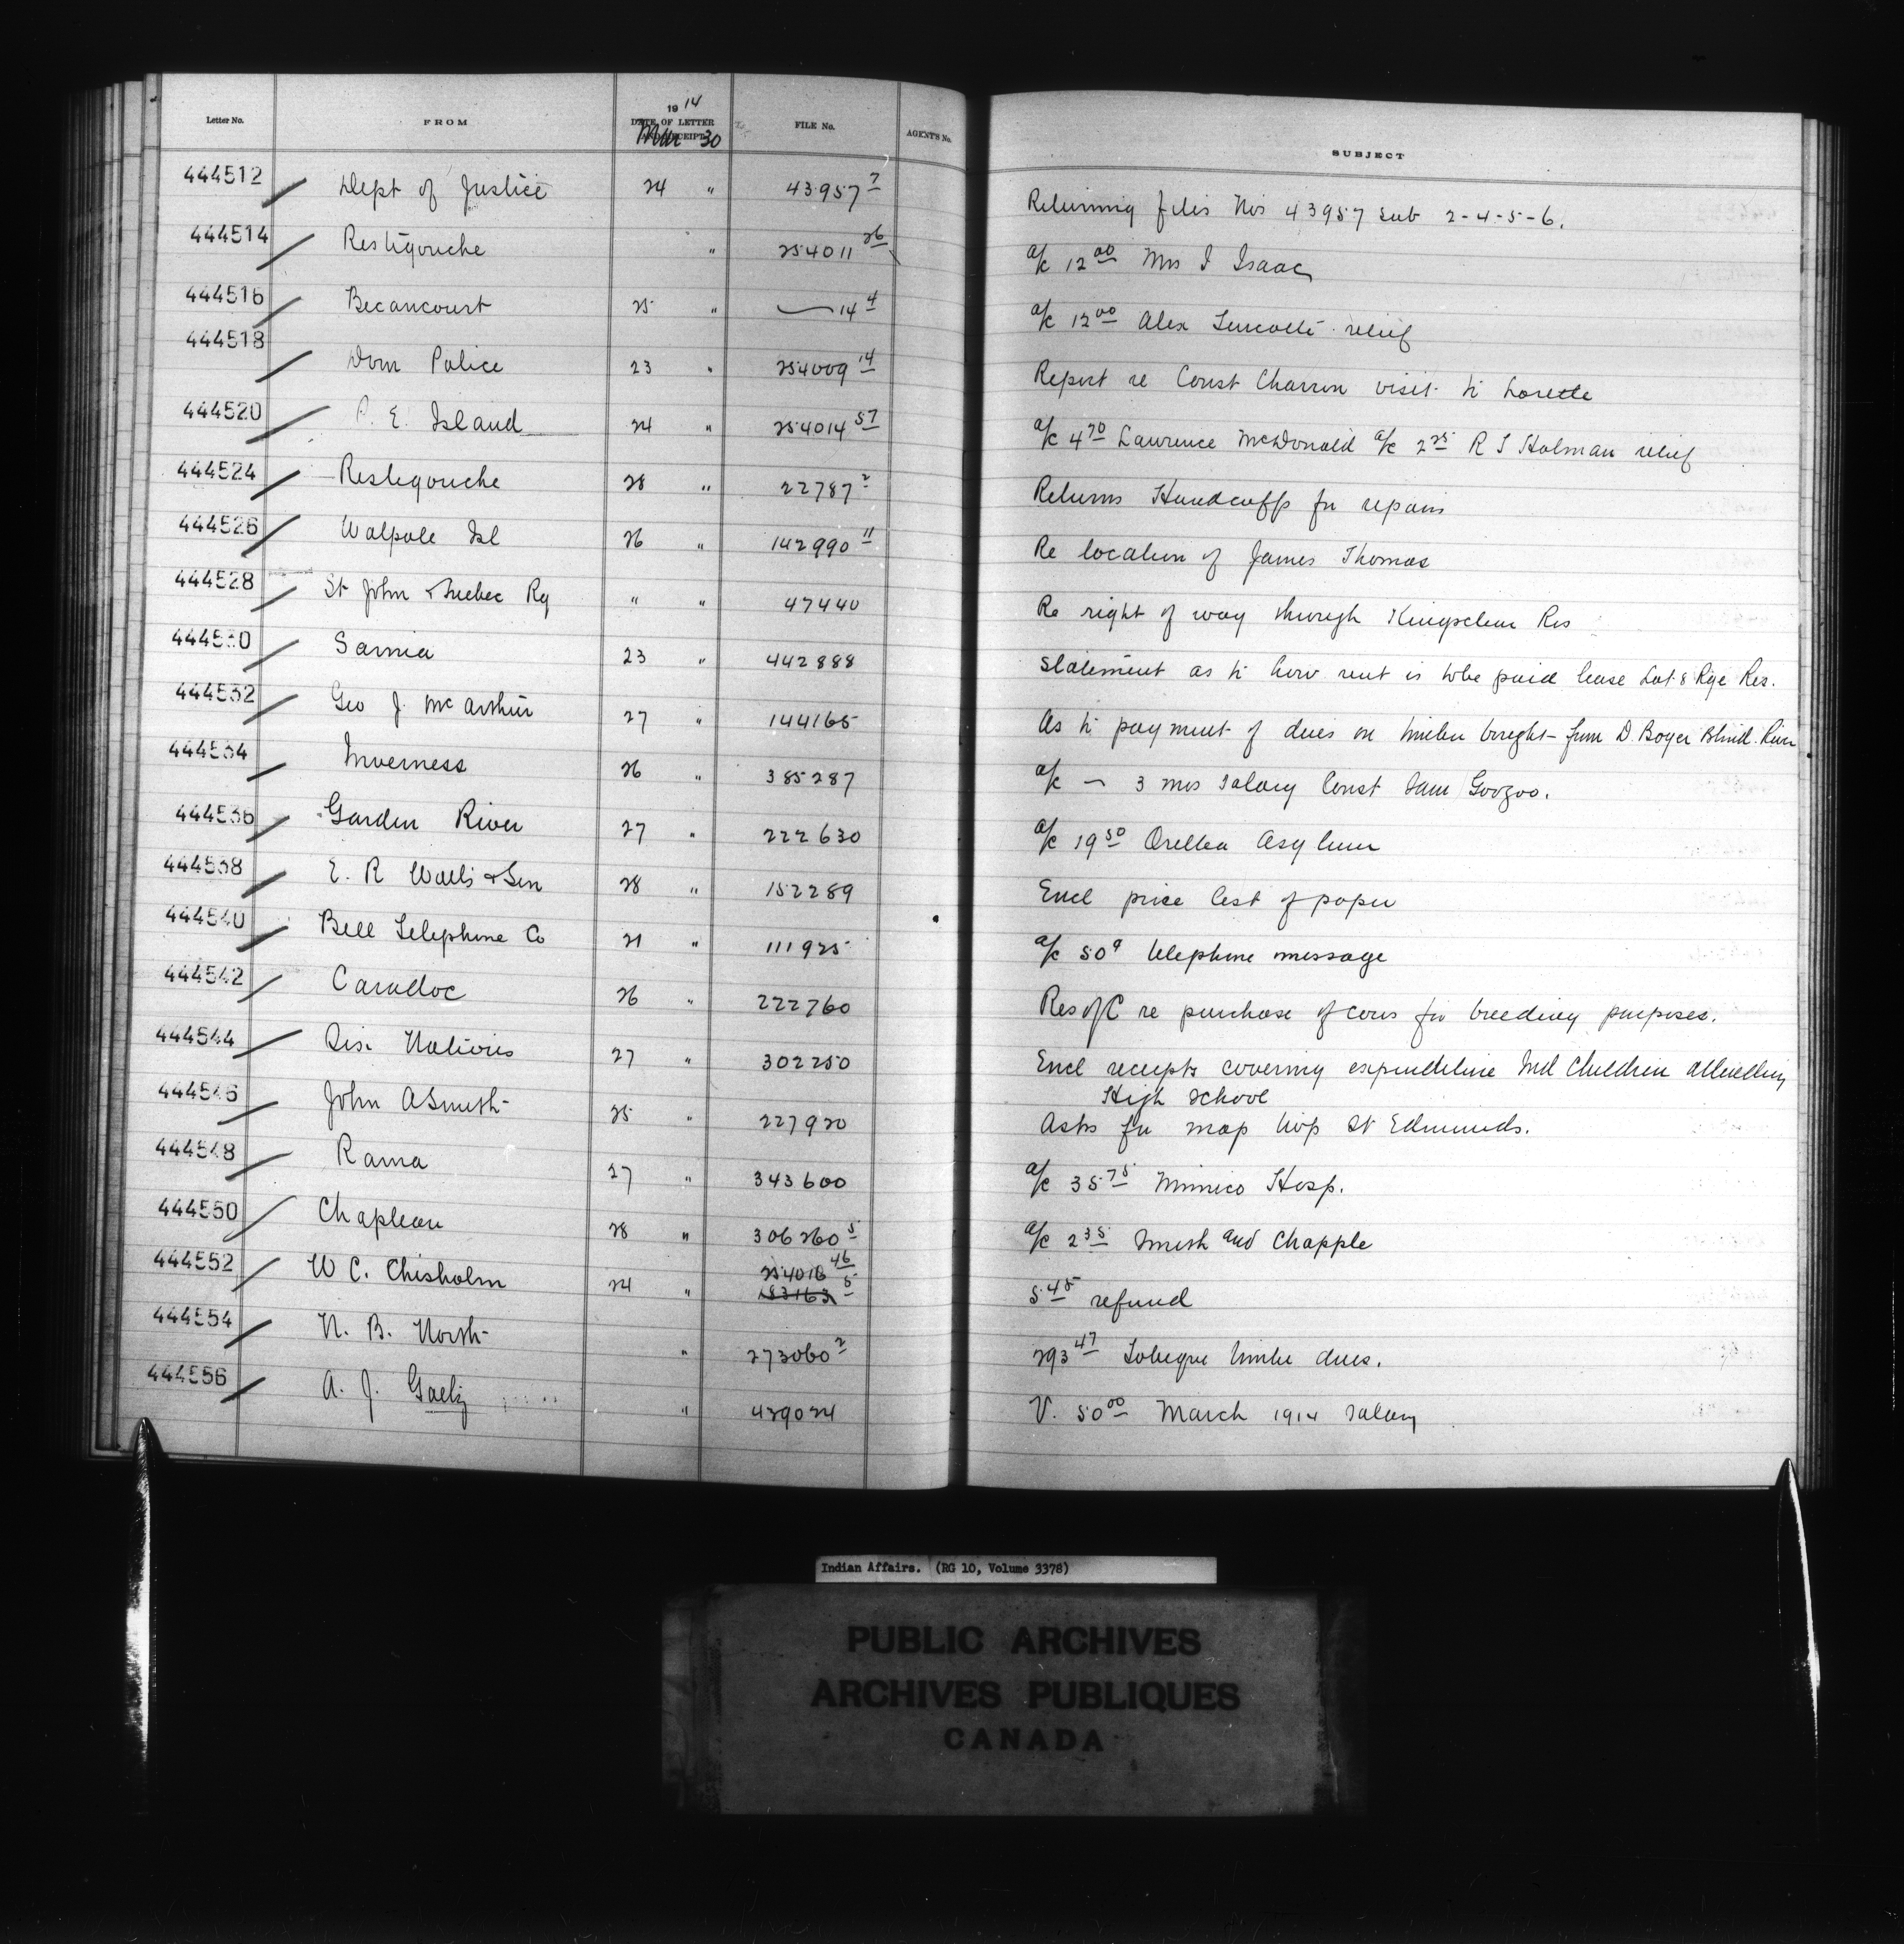 1914
Letter No. FROM DATE OF LETTER AND RECEIPT FILE No. AGENT'S No. SUBJECT
Mar 30
444512 Dept of Justice 24 " 43957 7 Returning files Nos 43957 sub 2-4-5-6.
444514 Restigouche " 254011 26 a/c 12 00 Mrs I Isaac
444516 Becancourt 25 " 14 4 a/c 12 00 Alex relief
444518 Dom Police 23 " 254009 14 Report re Const Charron visit to Lorette
444520 P. E. Island 24 " 254014 57 a/c 4 70 Lawrence McDonald a/c 2 25 R T Holman relief
444524 Restigouche 28 " 22787 2 Returns Handcuffs for repairs
444526 Walpole Isl 26 " 142990 11 Re location of James Thomas
444528 St John & Quebec Ry " " 47440 Re right of way through Kingsclear Res
444530 Sarnia 23 " 442888 Statement as to how rent is to be paid lease Lot 8 Rge Res.
444532 Geo J. McArthur 27 " 144165 As to payment of dues on timber bought from D. Boyer Blind River
444534 Inverness 26 " 385287 a/c — 3 mos salary Const Sam Googoo.
444536 Garden River 27 " 222630 a/c 19 50 Orillia Asylum
444538 E. R Watts & Son 28 " 152289 Encl price list of paper
444540 Bell Telephone Co 21 " 111925 a/c 50¢ telephone message
444542 Caradoc 26 " 222760 Res of C re purchase of cows for breeding purposes.
444544 Six Nations 27 " 302250 Encl receipts covering expenditure Ind Children attending
High School
444546 John A Smith 25 " 227920 Asks for map twp St Edmunds.
444548 Rama 27 " 343600 a/c 35 75 Mimico Hosp.
444550 Chapleau 28 " 306260 5 a/c 2 35 Smith and Chapple
444552 W C. Chisholm 24 " 254016 46 5 45 refund
183163 5
444554 N. B. North " 273060 2 293 47 Tobique timber dues.
444556 A. J. " 429024 V. 50 00 March 1914 salary
Indian Affairs. (RG 10, Volume 3378)
PUBLIC ARCHIVES
ARCHIVES PUBLIQUES
CANADA